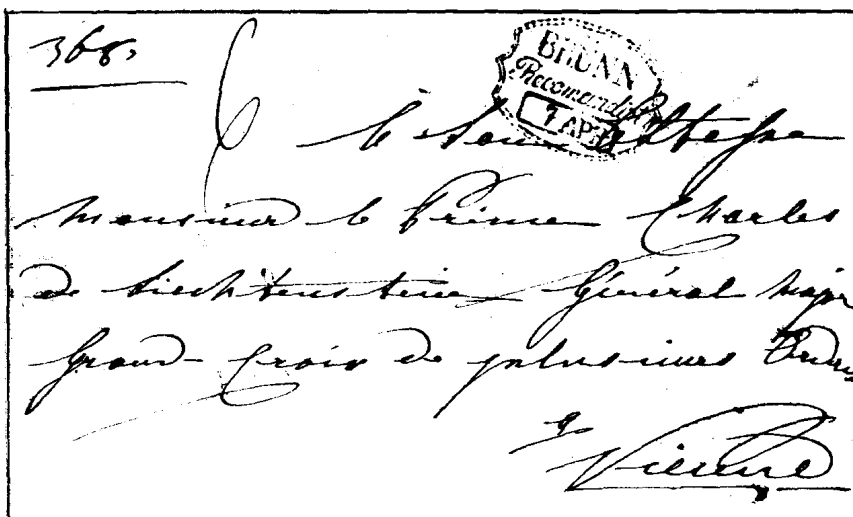 368.
BRÜNN
Recomandirt
7 APR
à Son Altesse
Monsieur le Prince Charles
de Liechtenstein Général Major
Grand-Croix de plusieurs Ordres
à
Vienne